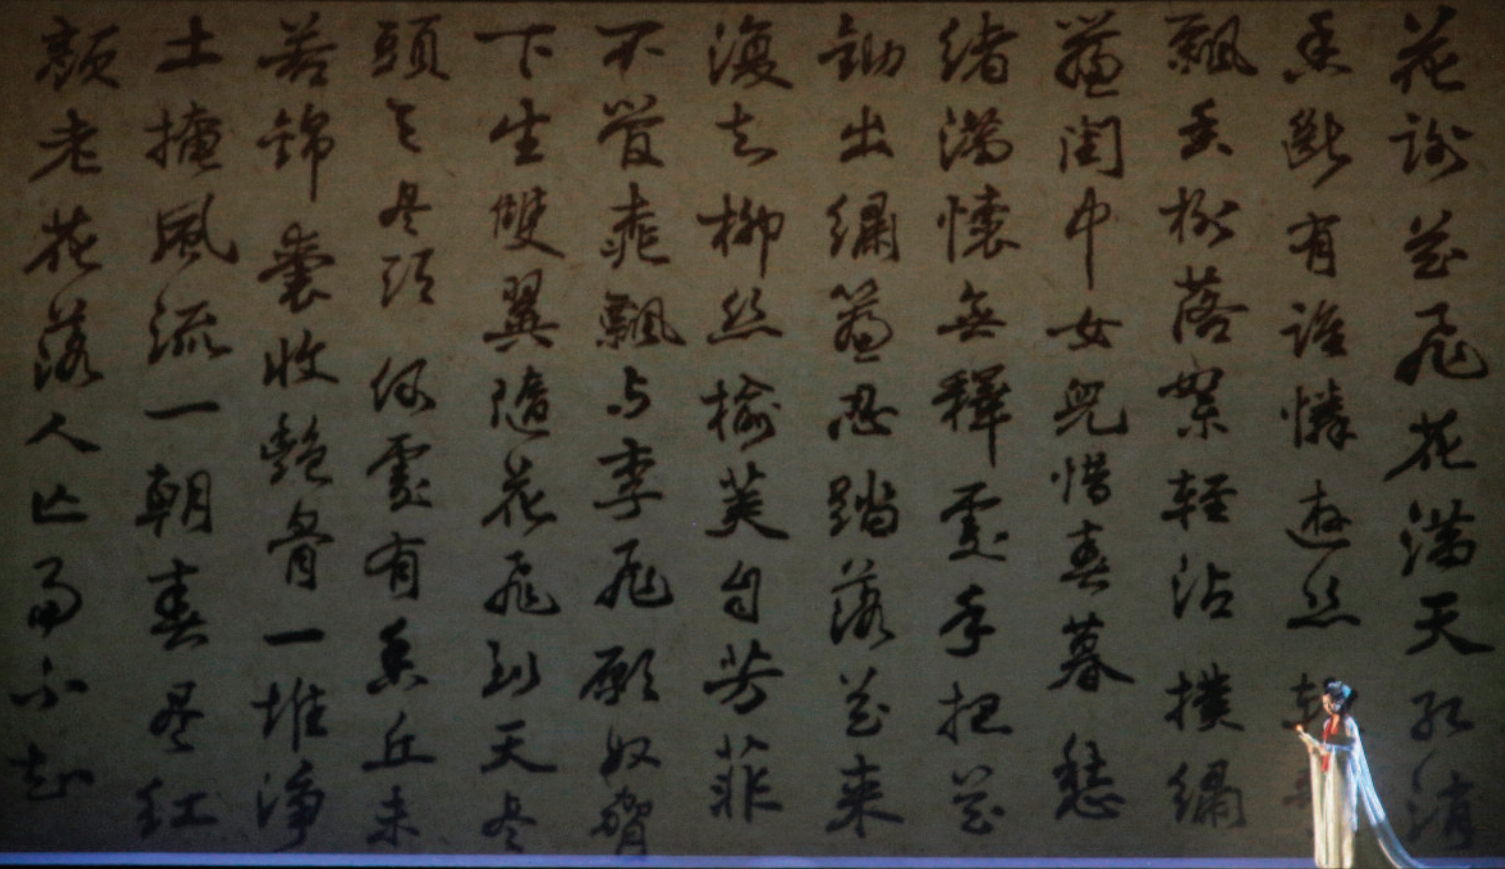 花謝花飛花滿天紅消
香斷有誰憐遊絲
飄香榭落絮輕沾撲繡
簾閨中女兒惜春暮愁
緒滿懷無釋處手把花
鋤出繡簾忍踏落花來
復去柳絲榆莢自芳菲
不管桃飄与李飛願奴脅
下生雙翼隨花飛到天尽
頭天尽頭何處有香丘未
若錦囊收艷骨一堆淨
土掩風流一朝春尽紅
顏老花落人亡兩不知